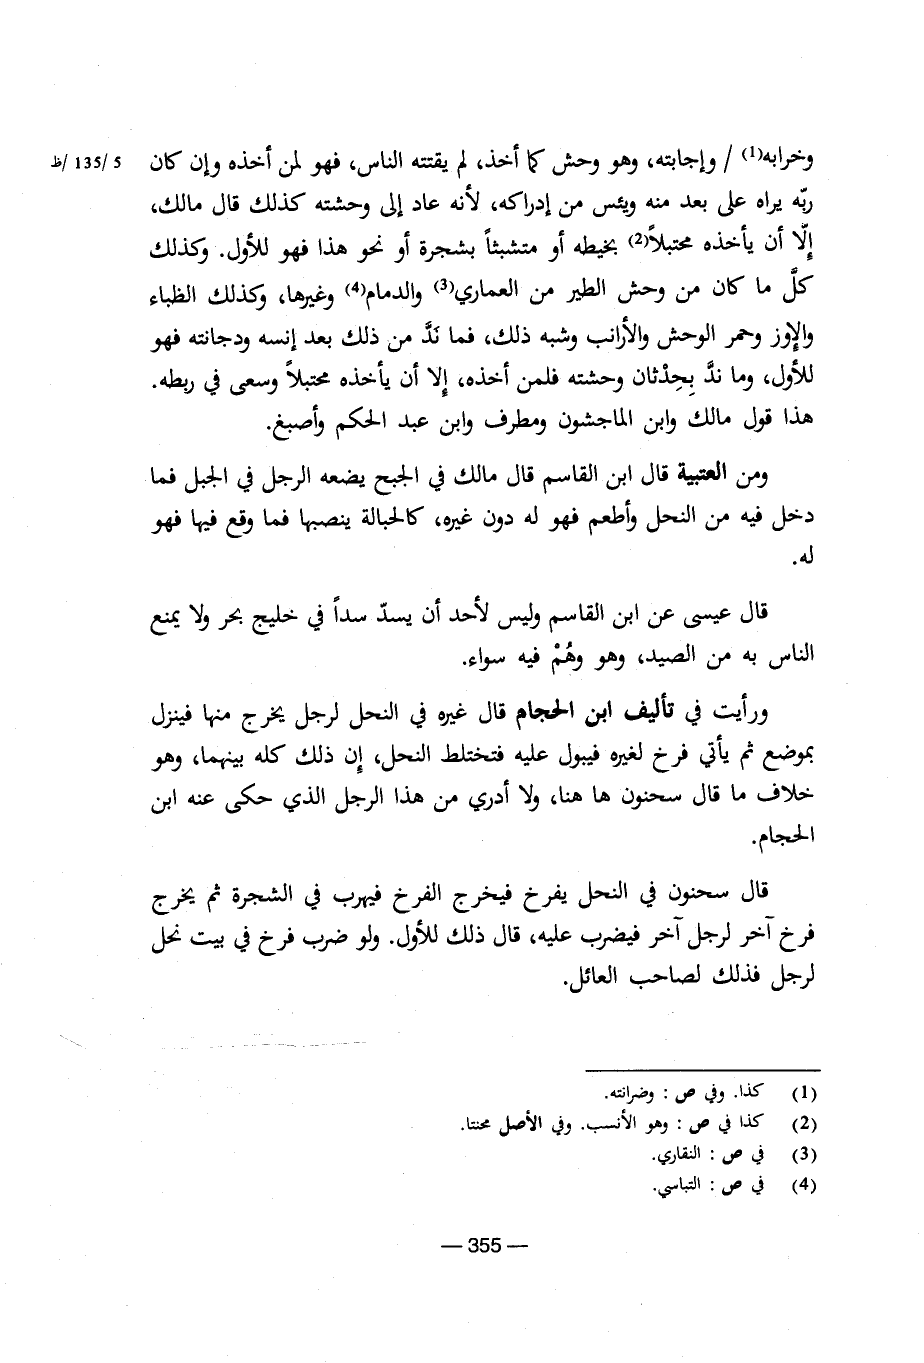 وخرابه(1) / وإجابته، وهو وحش كما أخذ، لم يقتنه الناس، فهو لمن أخذه وإن كان 5 /135/ظ
ربّه يراه على بعد منه ويئس من إدراكه، لأنه عاد إلى وحشته كذلك قال مالك،
إلّا أن يأخذه محتبلاً(2) بخيطه أو متشبثاً بشجرة أو نحو هذا فهو للأول. وكذلك
كلَّ ما كان من وحش الطير من العماري(3) والدمام(4) وغيرها، وكذلك الظباء
والإوز وحمر الوحش والأرانب وشبه ذلك، فما نَدَّ من ذلك بعد إنسه ودجانته فهو
للأول، وما ندَّ بِحِدْثان وحشته فلمن أخذه، إلا أن يأخذه محتبلاً وسعى في ربطه.
هذا قول مالك وابن الماجشون ومطرف وابن عبد الحكم وأصبغ.
ومن العتبية قال ابن القاسم قال مالك في الجبح يضعه الرجل في الجبل فما
دخل فيه من النحل وأطعم فهو له دون غيره، كالحبالة ينصبها فما وقع فيها فهو
له.
قال عيسى عن ابن القاسم وليس لأحد أن يسدّ سداً في خليج بحر ولا يمنع
الناس به من الصيد، وهو وهُمْ فيه سواء.
ورأيت في تأليف ابن الحجام قال غيره في النحل لرجل يخرج منها فينزل
بموضع ثم يأتي فرخ لغيره فيبول عليه فتختلط النحل، إن ذلك كله بينهما، وهو
خلاف ما قال سحنون ها هنا، ولا أدري من هذا الرجل الذي حكى عنه ابن
الحجام.
قال سحنون في النحل يفرخ فيخرج الفرخ فيهرب في الشجرة ثم يخرج
فرخ آخر لرجل آخر فيضرب عليه، قال ذلك للأول. ولو ضرب فرخ في بيت نحل
لرجل فذلك لصاحب العائل.
(1) كذا. وفي ص : وضرانته.
(2) كذا في ص : وهو الأنسب. وفي الأصل محنتا.
(3) في ص : النقاري.
(4) في ص : التباسي.
— 355 —